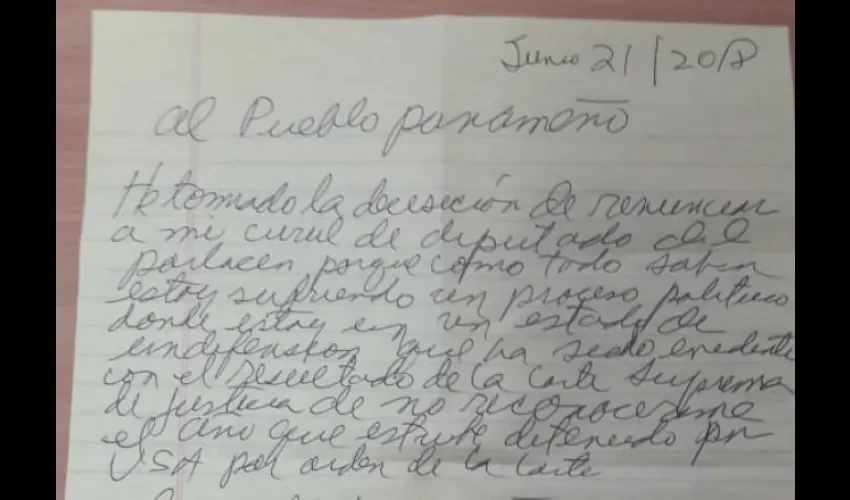 Junio 21/2018
al Pueblo panameño
He tomado la decisión de renunciar
a mi curul de diputado del
parlacen porque como todo saben
estoy sufriendo un proceso politico
donde estoy en un estado de
indifension que ha sido evidente
con el resultado de la Corte Suprema
de justicia de no reconocerme
el año que estube detenido por
USA por orden de la Corte